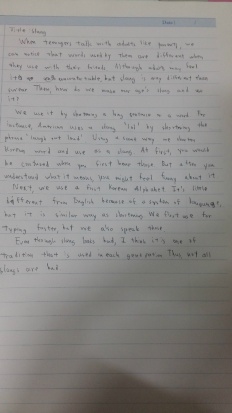 Title: Slang
When teenagers talk with adults like parents, we
can notice that words used by them are different when
they use with their friends. Although adults may feel
uncomfortable, but slang is any different these
Then, how do we make any new slang and use
it?
We use it by shortening a long sentence or a word. For
instance, American uses a slang 'lol' by shortening the
phrase 'laugh out loud'. Using a same way, we shorten
Korean word and use as a slang. At first, you would
be confused when you first hear those. But after you
understand what it means, you might feel funny about it
Next, we use a first Korean Alphabet. It's little
different from English because of a system of language,
but it is similar way as shortening. We first use for
typing faster, but we also speak those.
Even through slang looks bad, I think it's one of
tradition that is used in each generation. Thus, not all
slangs are bad